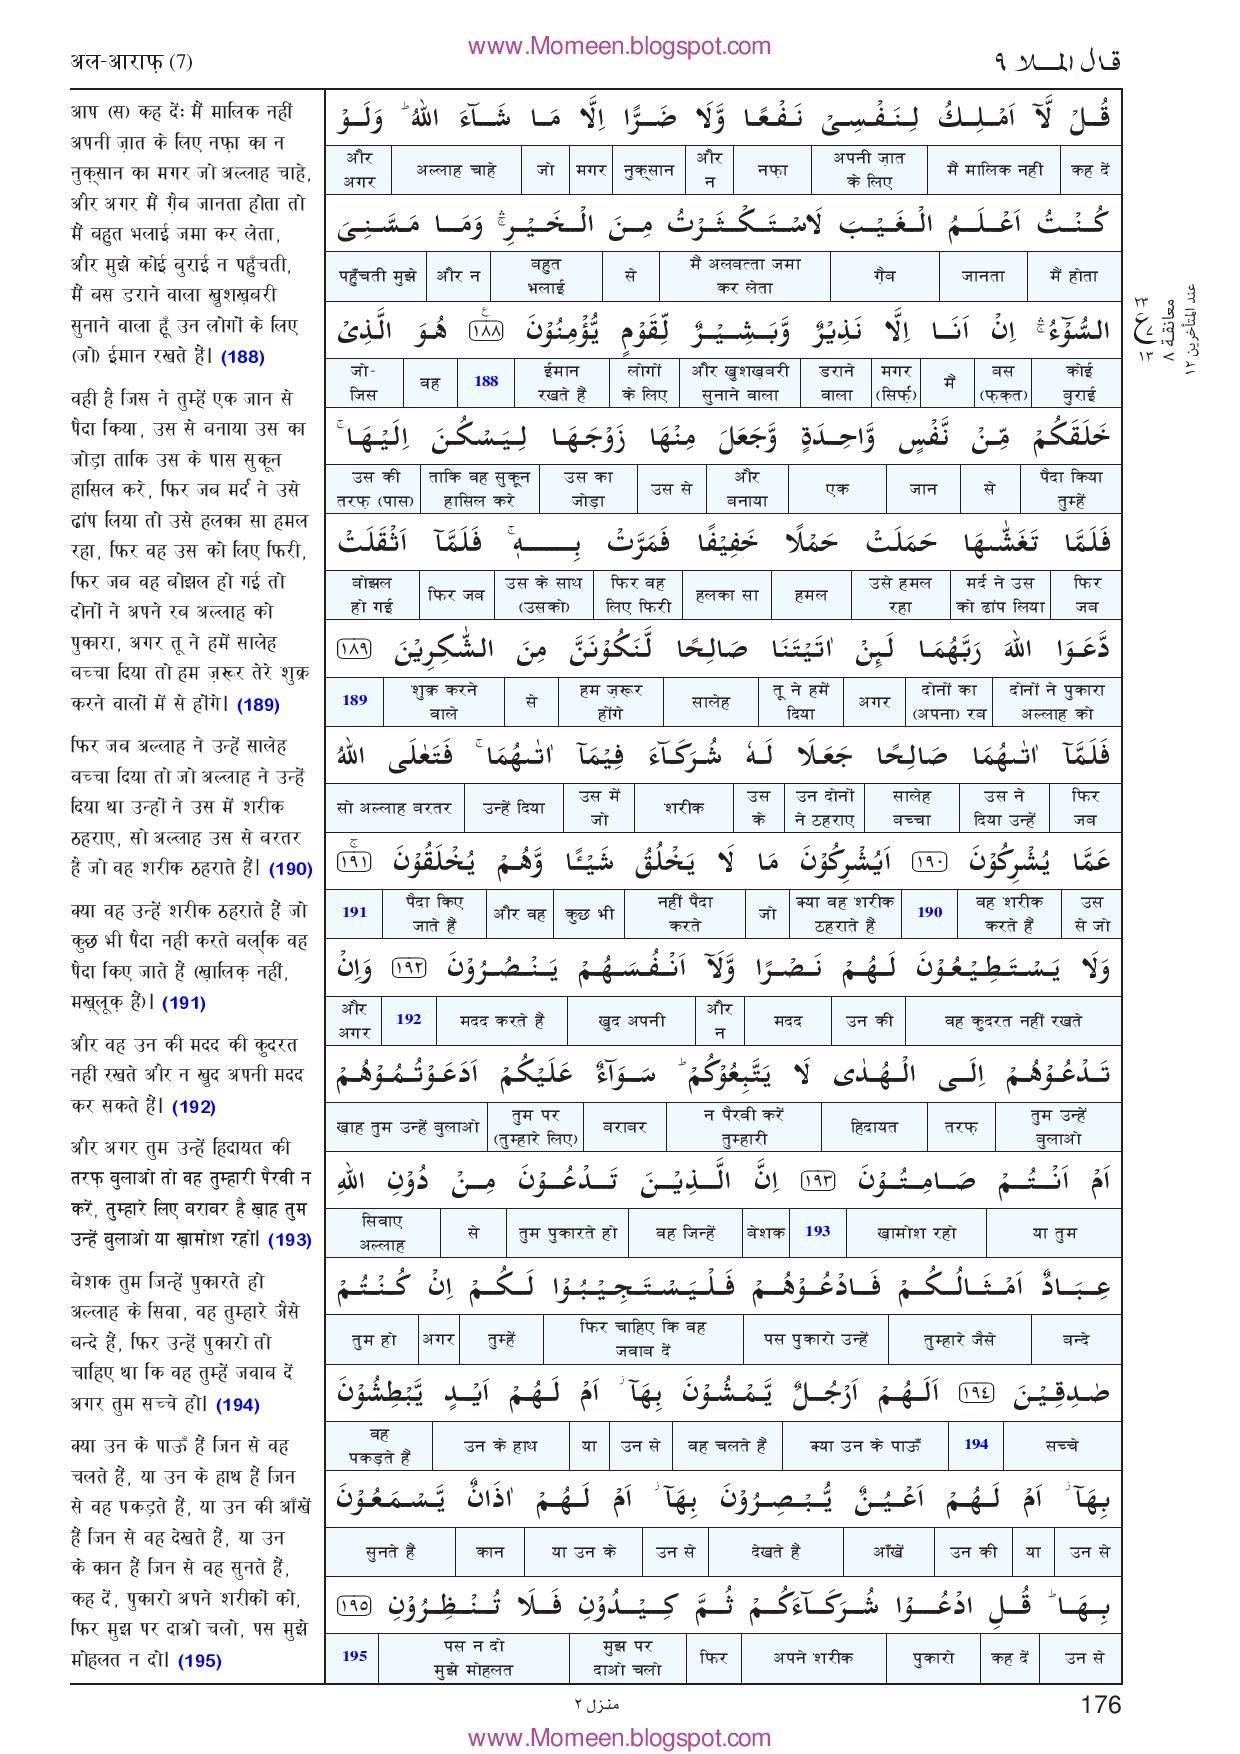 www.Momeen.blogspot.com
अल-आराफ़ (7)
قال الملا ٩
आप (स) कह दें: मैं मालिक नहीं
अपनी ज़ात के लिए नफ़ा का न
नुक़्सान का मगर जो अल्लाह चाहे,
और अगर मैं ग़ैब जानता होता तो
मैं बहुत भलाई जमा कर लेता,
और मुझे कोई बुराई न पहुँचती,
मैं बस डराने वाला ख़ुशख़बरी
सुनाने वाला हूँ उन लोगों के लिए
(जो) ईमान रखते हैं। (188)
वही है जिस ने तुम्हें एक जान से
पैदा किया, उस से बनाया उस का
जोड़ा ताकि उस के पास सुकून
हासिल करे, फिर जब मर्द ने उसे
ढांप लिया तो उसे हलका सा हमल
रहा, फिर वह उस को लिए फिरी,
फिर जब वह बोझल हो गई तो
दोनों ने अपने रब अल्लाह को
पुकारा, अगर तू ने हमें सालेह
बच्चा दिया तो हम ज़रूर तेरे शुक्र
करने वालों में से होंगे। (189)
फिर जब अल्लाह ने उन्हें सालेह
बच्चा दिया तो जो अल्लाह ने उन्हें
दिया था उन्हों ने उस में शरीक
ठहराए, सो अल्लाह उस से बरतर
है जो वह शरीक ठहराते हैं। (190)
क्या वह उन्हें शरीक ठहराते हैं जो
कुछ भी पैदा नहीं करते बल्कि वह
पैदा किए जाते हैं (ख़ालिक़ नहीं,
मख़्लूक़ हैं)। (191)
और वह उन की मदद की कुदरत
नहीं रखते और न ख़ुद अपनी मदद
कर सकते हैं। (192)
और अगर तुम उन्हें हिदायत की
तरफ़ बुलाओ तो वह तुम्हारी पैरवी न
करें, तुम्हारे लिए बराबर है ख़ाह तुम
उन्हें बुलाओ या ख़ामोश रहो। (193)
बेशक तुम जिन्हें पुकारते हो
अल्लाह के सिवा, वह तुम्हारे जैसे
बन्दे हैं, फिर उन्हें पुकारो तो
चाहिए था कि वह तुम्हें जवाब दें
अगर तुम सच्चे हो। (194)
क्या उन के पाऊँ हैं जिन से वह
चलते हैं, या उन के हाथ हैं जिन
से वह पकड़ते हैं, या उन की आँखें
हैं जिन से वह देखते हैं, या उन
के कान हैं जिन से वह सुनते हैं,
कह दें, पुकारो अपने शरीकों को,
फिर मुझ पर दाओ चलो, पस मुझे
मोहलत न दो। (195)
قُلْ لَّآ اَمْلِكُ لِنَفْسِىْ نَفْعًا وَّلَا ضَرًّا اِلَّا مَا شَآءَ اللّٰهُ ؕ وَلَوْ
कह दें मैं मालिक नहीं अपनी ज़ात के लिए नफ़ा और न नुक़्सान मगर जो अल्लाह चाहे और अगर
كُنْتُ اَعْلَمُ الْغَيْبَ لَاسْتَكْثَرْتُ مِنَ الْخَيْرِ ۛۚ وَمَا مَسَّنِىَ
मैं होता जानता ग़ैब मैं अलबत्ता जमा कर लेता से बहुत भलाई और न पहुँचती मुझे
السُّوْٓءُ ۛۚ اِنْ اَنَا اِلَّا نَذِيْرٌ وَّبَشِيْرٌ لِّقَوْمٍ يُّؤْمِنُوْنَ ﴿۱۸۸﴾ع هُوَ الَّذِىْ
कोई बुराई बस (फ़क़त) मैं मगर (सिर्फ़) डराने वाला और ख़ुशख़बरी सुनाने वाला लोगों के लिए ईमान रखते हैं 188 वह जो-जिस
خَلَقَكُمْ مِّنْ نَّفْسٍ وَّاحِدَةٍ وَّجَعَلَ مِنْهَا زَوْجَهَا لِيَسْكُنَ اِلَيْهَا ۚ
पैदा किया तुम्हें से जान एक और बनाया उस से उस का जोड़ा ताकि वह सुकून हासिल करे उस की तरफ़ (पास)
فَلَمَّا تَغَشّٰىهَا حَمَلَتْ حَمْلًا خَفِيْفًا فَمَرَّتْ بِهٖ ۚ فَلَمَّآ اَثْقَلَتْ
फिर जब मर्द ने उस को ढांप लिया उसे हमल रहा हमल हलका सा फिर वह लिए फिरी उस के साथ (उसको) फिर जब बोझल हो गई
دَّعَوَا اللّٰهَ رَبَّهُمَا لَٮِٕنْ اٰتَيْتَنَا صَالِحًا لَّنَكُوْنَنَّ مِنَ الشّٰكِرِيْنَ ﴿۱۸۹﴾
दोनों ने पुकारा अल्लाह को दोनों का (अपना) रब अगर तू ने हमें दिया सालेह हम ज़रूर होंगे से शुक्र करने वाले 189
فَلَمَّآ اٰتٰٮهُمَا صَالِحًا جَعَلَا لَهٗ شُرَكَآءَ فِيْمَآ اٰتٰٮهُمَا ۚ فَتَعٰلَى اللّٰهُ
फिर जब उस ने दिया उन्हें सालेह बच्चा उन दोनों ने ठहराए उस के शरीक उस में जो उन्हें दिया सो अल्लाह बरतर
عَمَّا يُشْرِكُوْنَ ﴿۱۹۰﴾ اَيُشْرِكُوْنَ مَا لَا يَخْلُقُ شَيْئًا وَّهُمْ يُخْلَقُوْنَ ﴿۱۹۱﴾ۚ
उस से जो वह शरीक करते हैं 190 क्या वह शरीक ठहराते हैं जो नहीं पैदा करते कुछ भी और वह पैदा किए जाते हैं 191
وَلَا يَسْتَطِيْعُوْنَ لَهُمْ نَصْرًا وَّلَآ اَنْفُسَهُمْ يَنْصُرُوْنَ ﴿۱۹۲﴾ وَاِنْ
वह कुदरत नहीं रखते उन की मदद और न ख़ुद अपनी मदद करते हैं 192 और अगर
تَدْعُوْهُمْ اِلَى الْهُدٰى لَا يَتَّبِعُوْكُمْ ؕ سَوَآءٌ عَلَيْكُمْ اَدَعَوْتُمُوْهُمْ
तुम उन्हें बुलाओ तरफ़ हिदायत न पैरवी करें तुम्हारी बराबर तुम पर (तुम्हारे लिए) ख़ाह तुम उन्हें बुलाओ
اَمْ اَنْتُمْ صَامِتُوْنَ ﴿۱۹۳﴾ اِنَّ الَّذِيْنَ تَدْعُوْنَ مِنْ دُوْنِ اللّٰهِ
या तुम ख़ामोश रहो 193 बेशक वह जिन्हें तुम पुकारते हो से सिवाए अल्लाह
عِبَادٌ اَمْثَالُكُمْ فَادْعُوْهُمْ فَلْيَسْتَجِيْبُوْا لَكُمْ اِنْ كُنْتُمْ
बन्दे तुम्हारे जैसे पस पुकारो उन्हें फिर चाहिए कि वह जवाब दें तुम्हें अगर तुम हो
صٰدِقِيْنَ ﴿۱۹٤﴾ اَلَهُمْ اَرْجُلٌ يَّمْشُوْنَ بِهَآ ۫ اَمْ لَهُمْ اَيْدٍ يَّبْطِشُوْنَ
सच्चे 194 क्या उन के पाऊँ वह चलते हैं उन से या उन के हाथ वह पकड़ते हैं
بِهَآ ۫ اَمْ لَهُمْ اَعْيُنٌ يُّبْصِرُوْنَ بِهَآ ۫ اَمْ لَهُمْ اٰذَانٌ يَّسْمَعُوْنَ
उन से या उन की आँखें देखते हैं उन से या उन के कान सुनते हैं
بِهَا ؕ قُلِ ادْعُوْا شُرَكَآءَكُمْ ثُمَّ كِيْدُوْنِ فَلَا تُنْظِرُوْنِ ﴿۱۹۵﴾
उन से कह दें पुकारो अपने शरीक फिर मुझ पर दाओ चलो पस न दो मुझे मोहलत 195
٢٣
ع
١٣
معانقة ٨
عند المتأخرين ١٢
منزل ٢
176
www.Momeen.blogspot.com